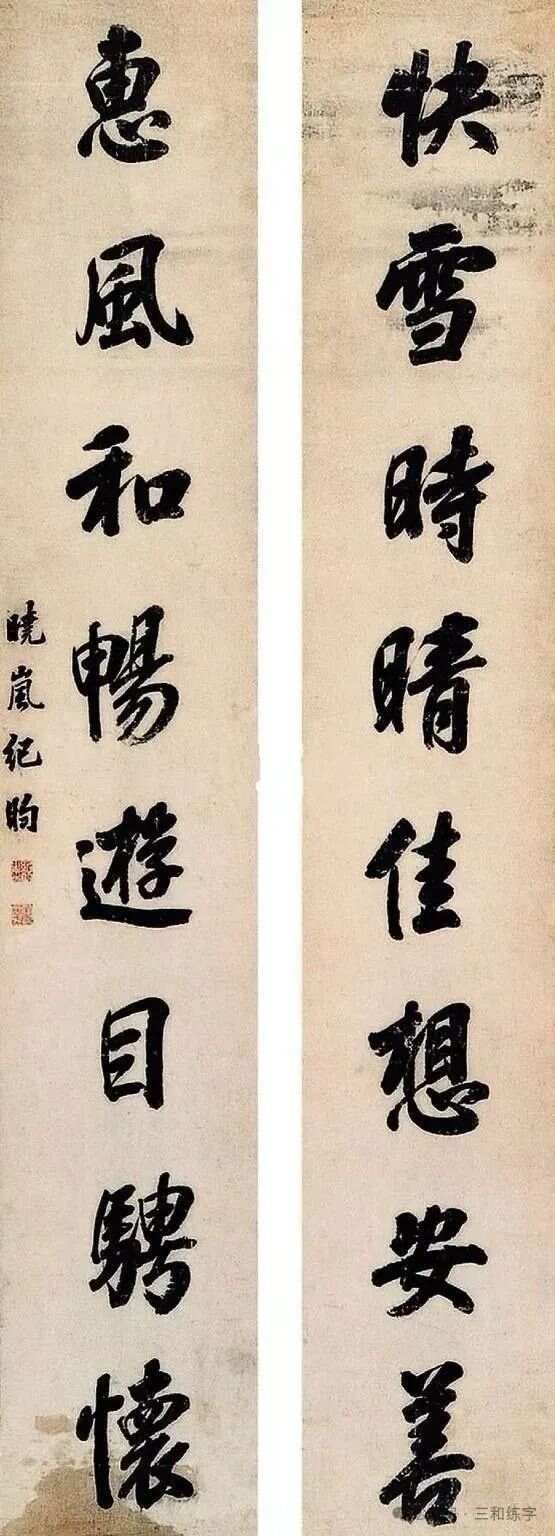 快雪時晴佳想安善
惠風和暢遊目騁懷
曉嵐紀昀
三和练字